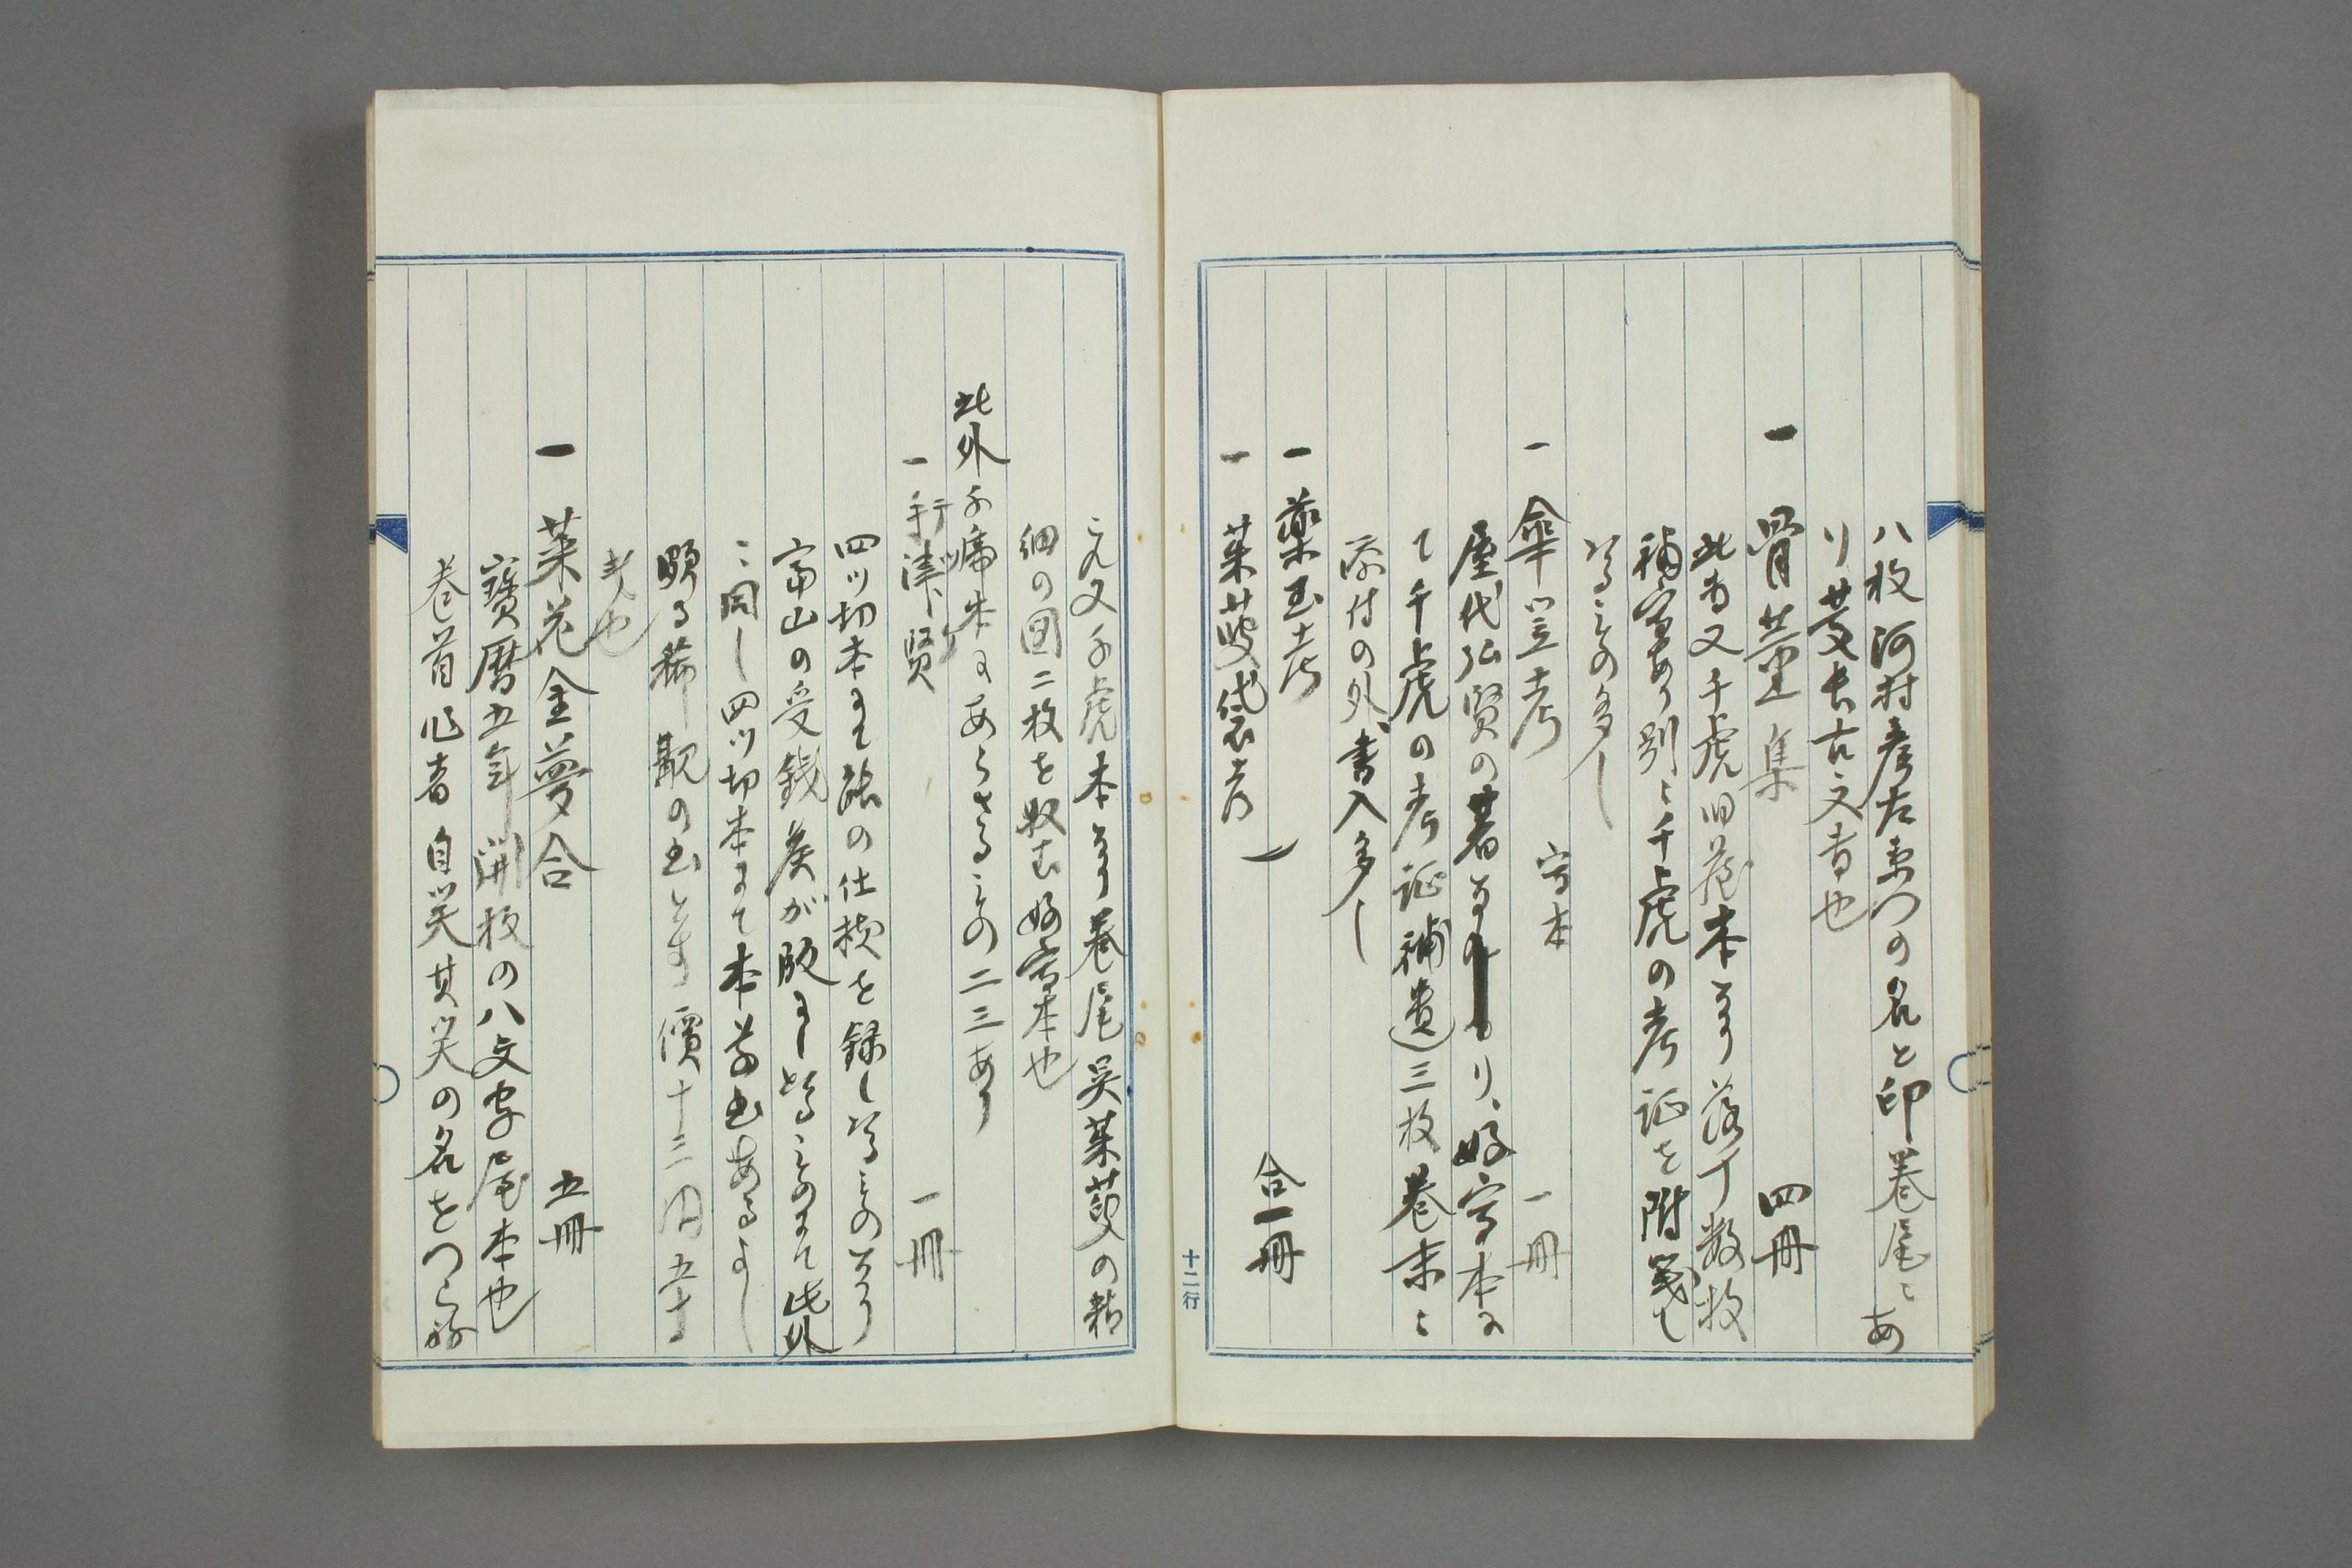 八枚河村彦左衛門の名と印巻尾ニあ
り蓋古文書也
一 骨董集 四冊
此書又千虎旧蔵本なり落丁数枚
補写あり別ニ千虎の考証を附箋し
たるもの多し
一 傘笠考 写本 一冊
屋代弘賢の著なり、好写本に
て千虎の考証補遺三枚巻末ニ
添付の外、書入多し
一 薬玉考
一 茱萸袋考 合一冊
十二行
これ又千虎本なり巻尾呉茱萸の精
細の図二枚を収む好写本也
此外千虎本にあらさるもの二三あり
一 行津 賢 一冊
四ツ切本にて の仕様を録したるものなり
富山の受銭 が版にしたるものにて此外
ニ同し四ツ切本にて本草書あるよし
頗る稀覯の書とす価十三円五十
銭也
一 菜花金夢合 五冊
宝暦五年開板の八文字屋本也
巻首作者自笑其笑の名をつらね